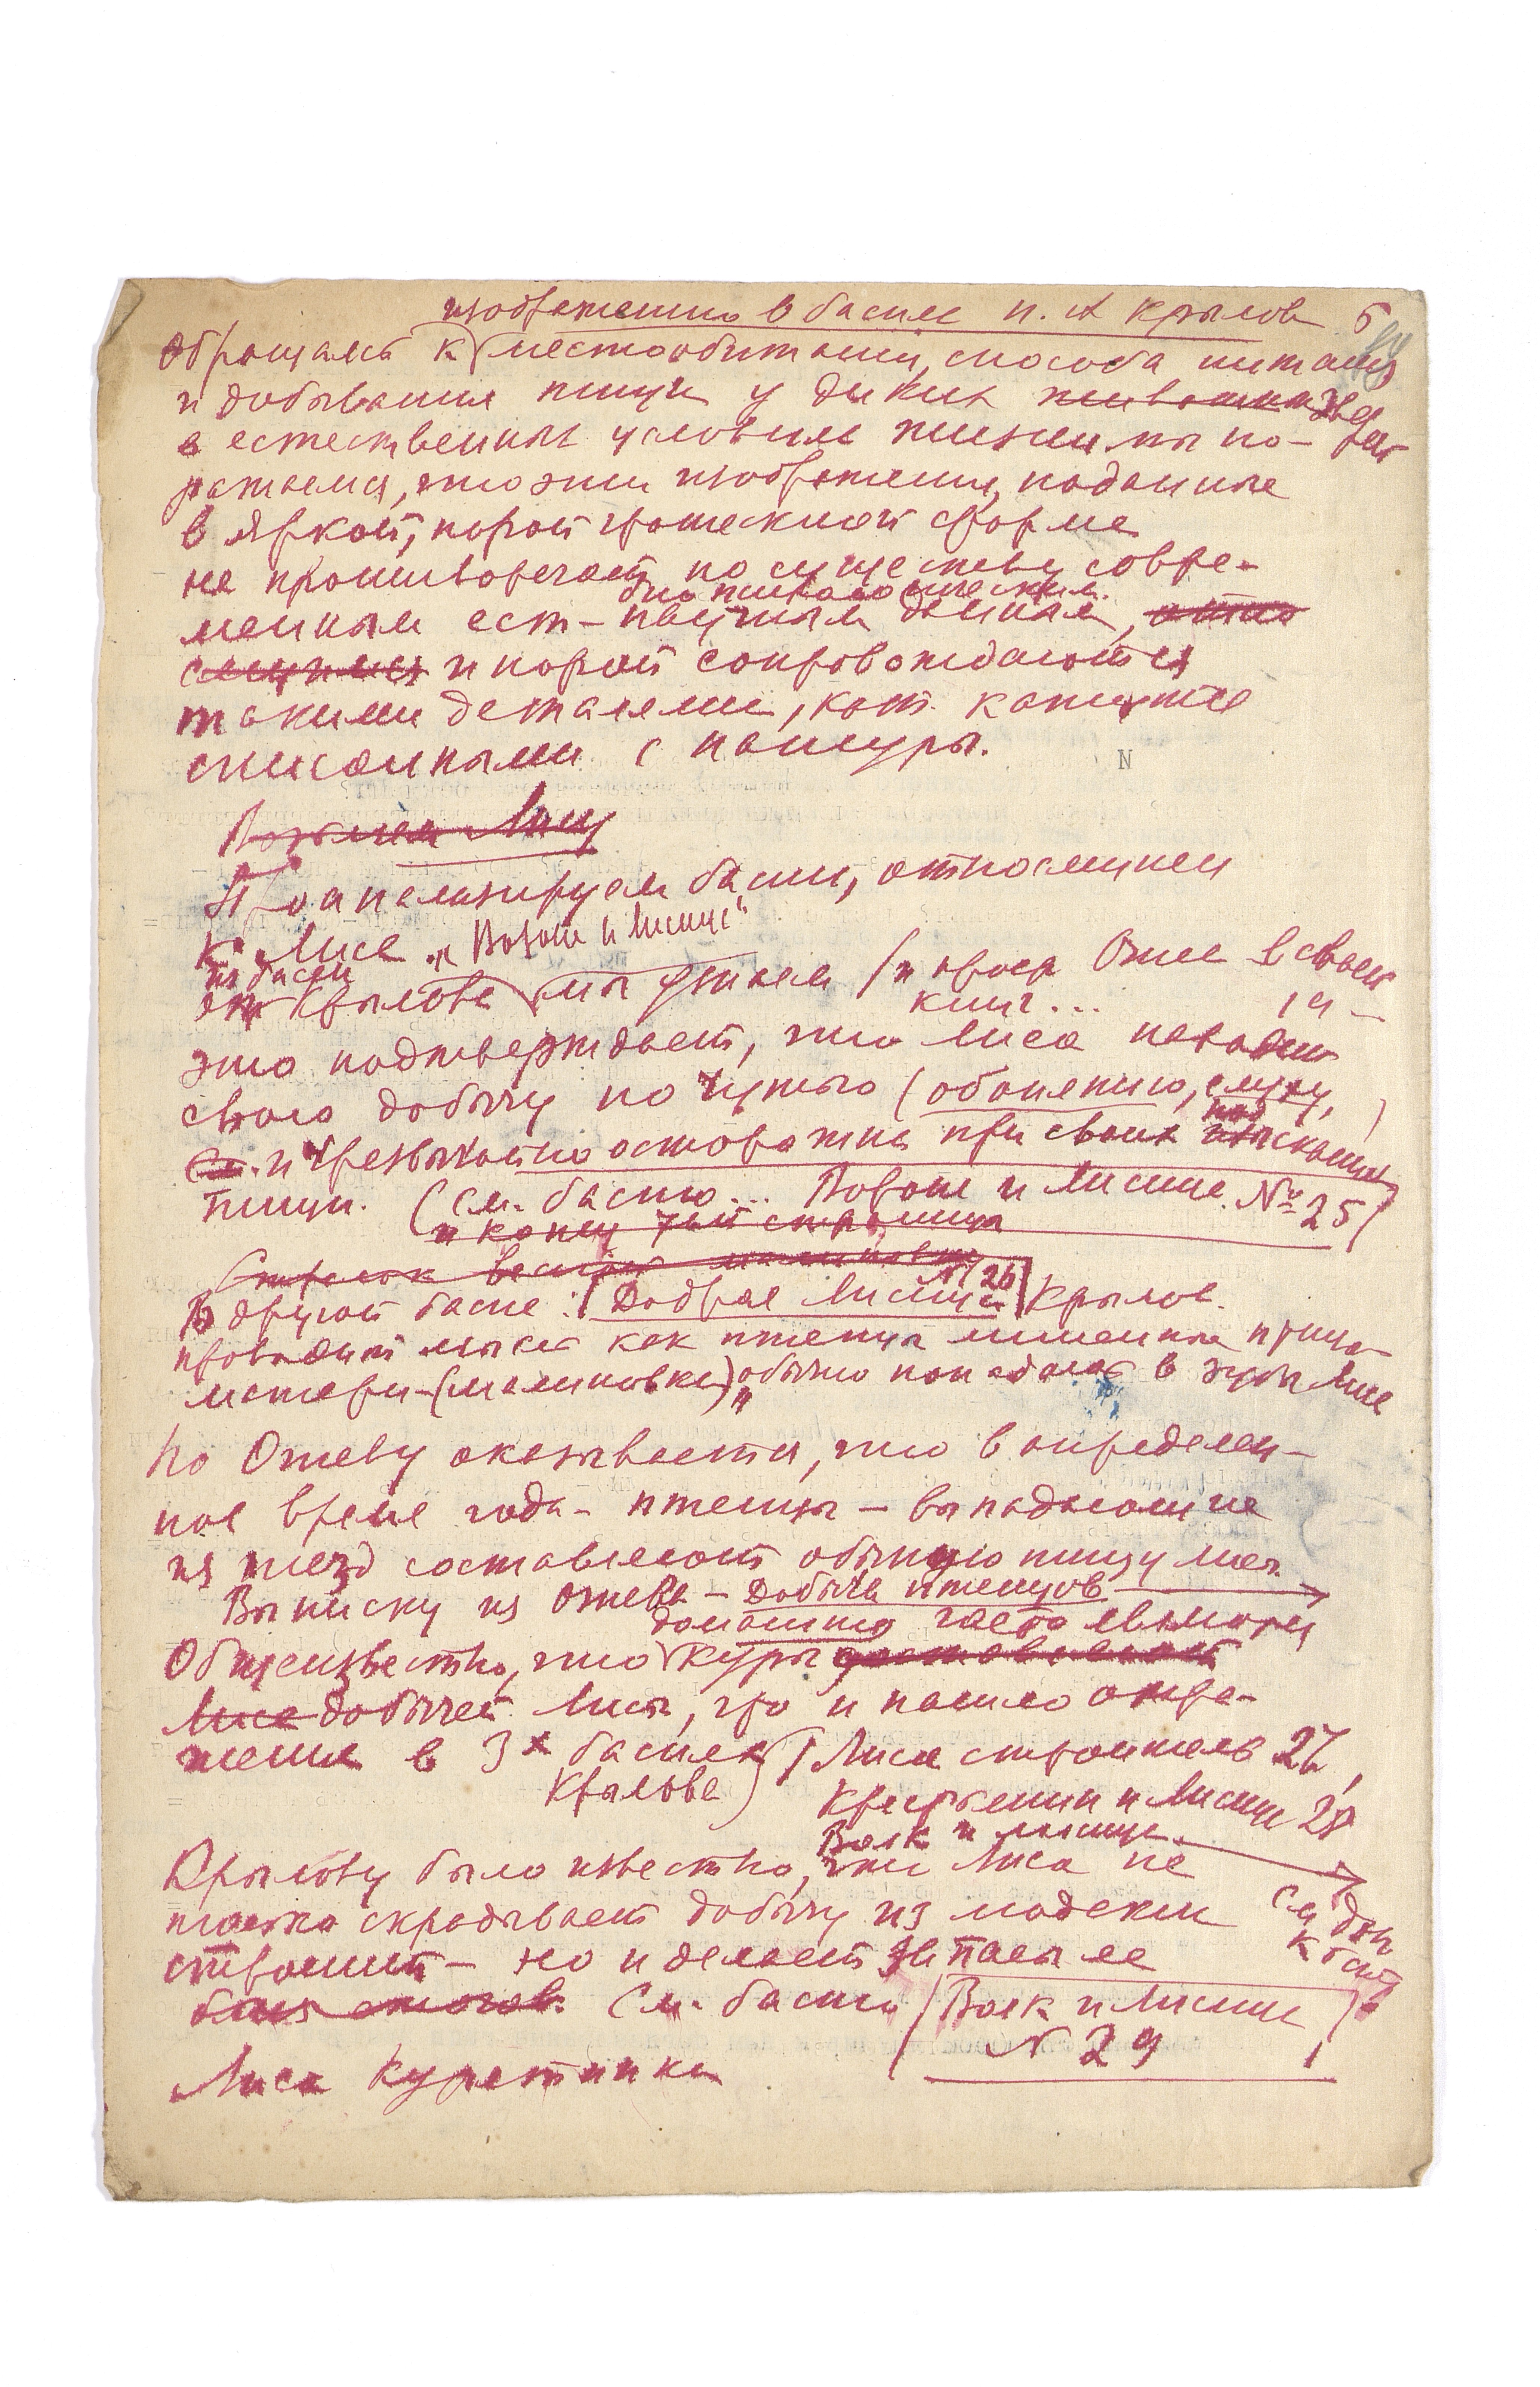 изображению в баснях И. А Крылова 5
Обращаясь к местообитанию, способа питания
и добывания пищи у диких животных зверей
в естественных условиях жизни мы по-
ражаемся, что эти изображения, поданные
в яркой, порой гротескной форме
не противоречат по существу совре-
биологическим
менным ест-научным данным,
и порой сопровождаются
такими деталями, кот. кажутся
списанными с натуры.
Возьмем Лису
Проанализируем басни, относящиеся
к Лисе „Ворона и Лисица"
из басни
Крылова мы узнаем (и проф Огнев в своей
книге...
это подтверждает, что Лиса находит
свою добычу по чутью (обонянию, слуху,)
и чрезвычайно осторожна при своих
пищи. (См. басню... Ворона и Лисица. № 25)
к концу страницы
N 26
В другой басне: (Добрая Лисица) Крылов
проводит мысль как птенцы лишенные
матери (малиновки) обычно попадают в зубы Лисе
По Огневу оказывается, что в определен-
ное время года - птенцы - выпадающие
из гнезд составляют обычную пищу лисы.
Выписку из Огнева - Добыча птенцов
домашние часто являются
Общеизвестно, что куры
Лиса добычей Лисы, что и нашло отра-
жение в 3х баснях (Лиса строитель 27,
Крылова) Крестьянин и Лисица 28
Волк и лисица
Крылову было известно, что Лиса не
только скрадывает добычу из людских
строений - но и делает запасы ее
См. басню (Волк и Лисица)
N 29
Лиса Курятника